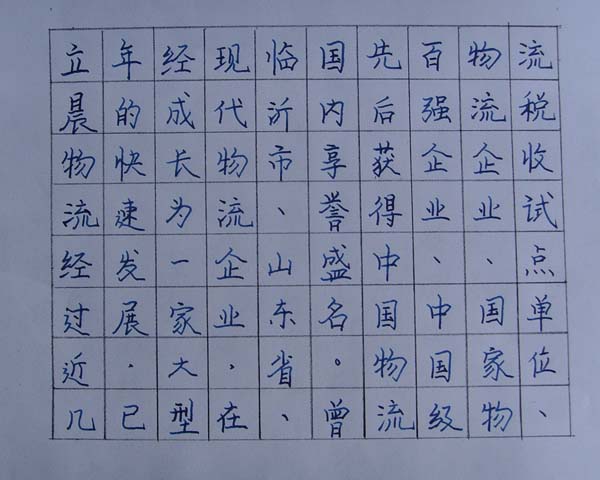 立晨物流经过近几
年的快速发展，已
经成长为一家大型
现代物流企业，在
临沂市、山东省、
国内享誉盛名。曾
先后获得中国物流
百强企业、中国级
物流企业、国家物
流税收试点单位、